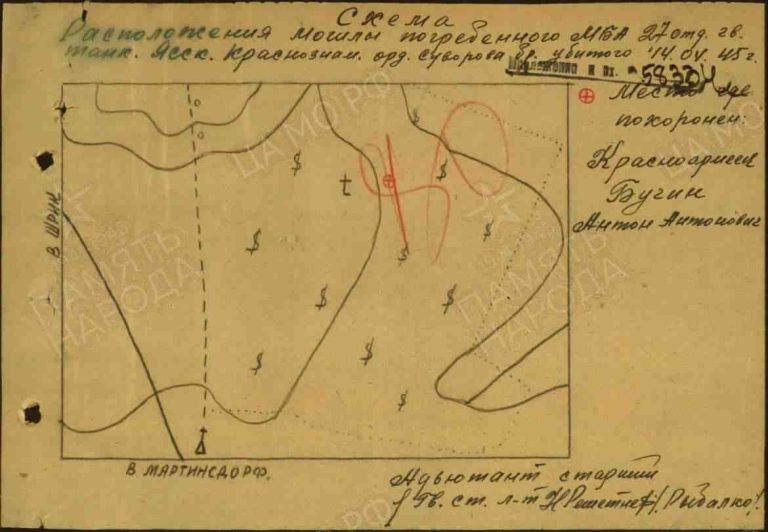 Схема
Расположения могилы погребенного МБА 27 отд. гв.
танк. Ясск. Краснознам. орд. Суворова бр. убитого 14.04.45 г.
Место где
похоронен:
Красноармеец
Бугин
Антон Антонович
В ШРИК
В МАРТИНСДОРФ.
Адъютант старший
Гв. ст. л-т Рыбалко
ЦА МО РФ
ПАМЯТЬ
НАРОДА